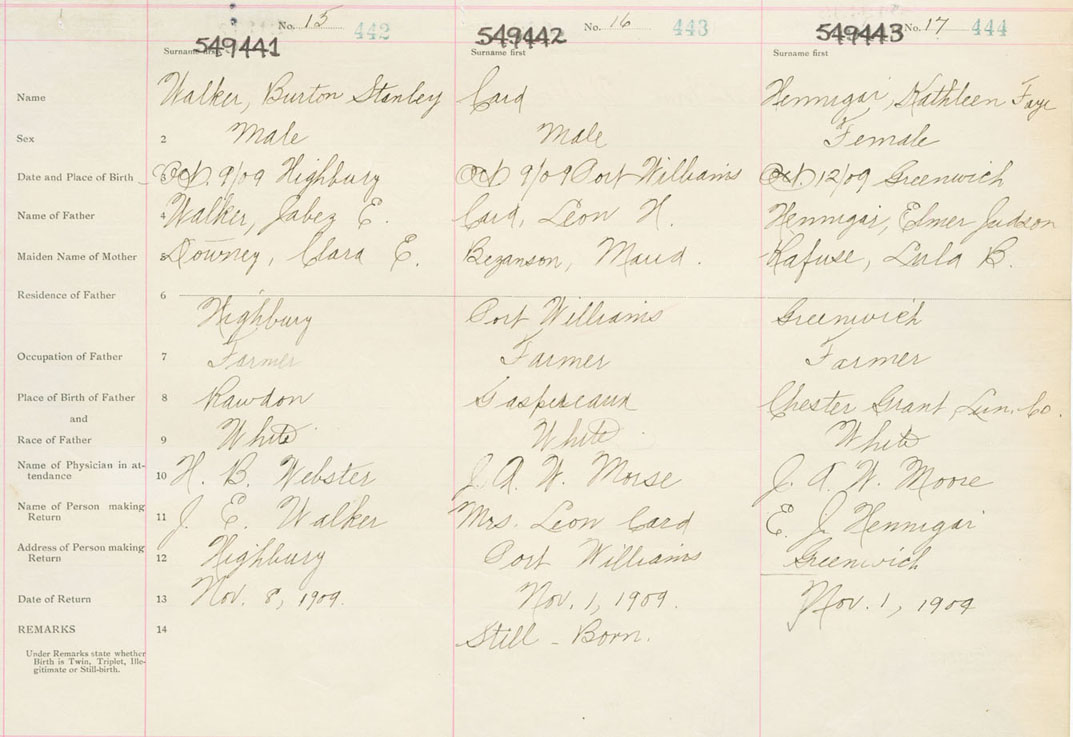 No. 15 442 No. 16 443 No. 17 444
549441 549442 549443
Surname first Surname first Surname first
Name Walker, Burton Stanley Card Hennigar, Kathleen Faye
Sex 2 Male Male Female
Date and Place of Birth 3 Oct. 9/09 Highbury Oct 9/09 Port Williams Oct. 12/09 Greenwich
Name of Father 4 Walker, Jabez E. Card, Leon H. Hennigar, Elmer Judson
Maiden Name of Mother 5 Downey, Clara E. Bezanson, Maud. Rafuse, Lula B.
Residence of Father 6
Highbury Port Williams Greenwich
Occupation of Father 7 Farmer Farmer Farmer
Place of Birth of Father 8 Rawdon Gaspereaux Chester Grant Lun. Co.
and
Race of Father 9 White White White
Name of Physician in at-
tendance 10 H. B. Webster J. A. W. Morse J. A. W. Moore
Name of Person making
Return 11 J. E. Walker Mrs. Leon Card E. J. Hennigar
Address of Person making
Return 12 Highbury Port Williams Greenwich
Date of Return 13 Nov. 8, 1909. Nov. 1, 1909. Nov. 1, 1909
REMARKS 14 Still - Born.
Under Remarks state whether
Birth is Twin, Triplet, Ille-
gitimate or Still-birth.